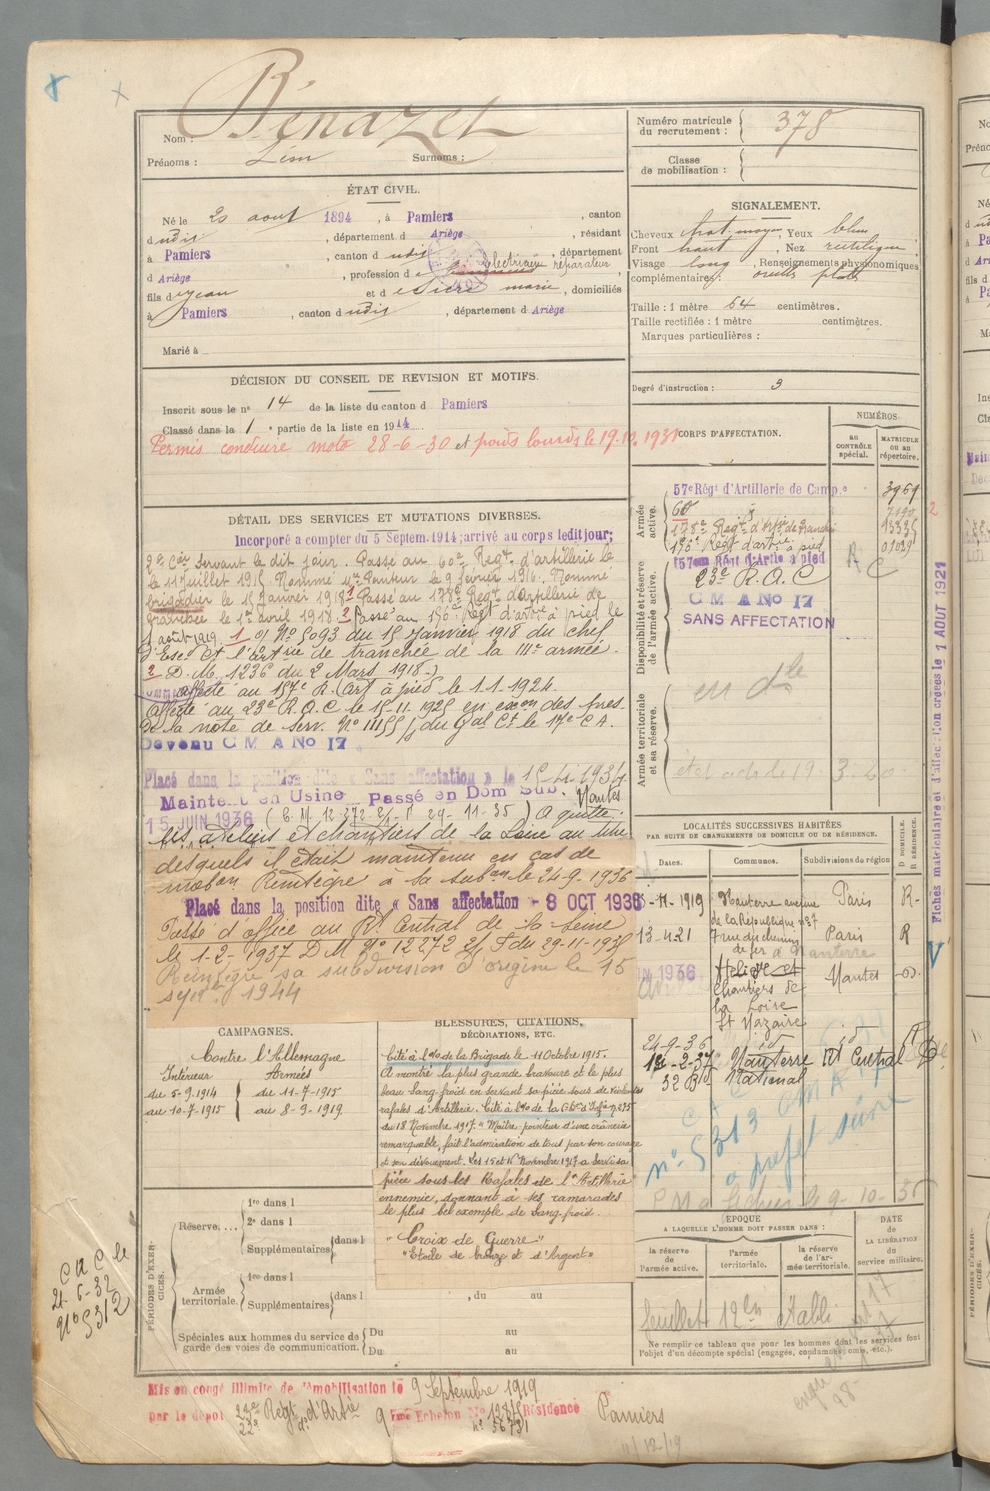 Bénazet
Nom :
Prénoms :
Surnoms :
Numéro matricule
du recrutement :
378
Classe
de mobilisation :
ÉTAT CIVIL.
Né le 20 aout 1894, à Pamiers, canton
dudit, département d Ariège, résidant
à Pamiers, canton dudit, département
d Ariège, profession de Electricien réparateur,
fils de Jean et de Sicre marie, domiciliés
à Pamiers, canton dudit, département d Ariège
Marié à
SIGNALEMENT.
Cheveux chat. moyen, Yeux bleus
Front haut, Nez rectiligne,
Visage long, Renseignements physionomiques
complémentaires : oreilles plates
Taille : 1 mètre 64 centimètres.
Taille rectifiée : 1 mètre centimètres.
Marques particulières :
Degré d'instruction : 3
DÉCISION DU CONSEIL DE REVISION ET MOTIFS.
Inscrit sous le n° 14 de la liste du canton d Pamiers
Classé dans la 1e partie de la liste en 1914.
Permis conduire moto 28-6-30 et poids lourds le 19.12.1931
DÉTAIL DES SERVICES ET MUTATIONS DIVERSES.
Incorporé a compter du 5 Septem. 1914; arrivé au corps ledit jour;
2e Cer servant le dit jour. Passé au 60e Regt. d'artillerie le
le 11 Juillet 1915. Nommé Me Pointeur le 9 février 1916. Nommé
brigadier le 15 Janvier 1918 1 Passé au 178e Regt d'artillerie de
tranchée le 1er avril 1918. 2 Passé au 156e Regt d'artie à pied le
1 août 1919. 1 o/ No 5093 du 15 Janvier 1918 du chef
d'Escon Ct l'artie de tranchée de la IIIe armée.
2 D.M. 1236 du 2 Mars 1918.)
affecté au 157e R. d'art à pied le 1.1.1924.
Affecté au 23e R.A.C le 15.11.1925 en exon des pres
de la note de serv. No 11155 1/ du Gal Ct. le 17e C.A.
Devenu C M A No 17
Placé dans la position dite « Sans affectation » le
Maintenu en Usine Passé en Dom Sub. Nantes
15 JUIN 1936 ( C.M. 12.372 2/ 29-11-35 ) A quitté
les ateliers et chantiers de la Loire au titre
desquels il était maintenu en cas de
mobon Réintègre à sa subon le 24-9.1936
Placé dans la position dite « Sans affectation » - 8 OCT 1936
Passé d'office au Rt Central de la Seine
le 1-2-1937 DM No 12272 2/ du 29-11-1935
Réintègre sa subdivision d'origine le 15
1944
CORPS D'AFFECTATION.
NUMÉROS.
AU CONTRÔLE SPÉCIAL.
MATRICULE OU AU RÉPERTOIRE.
Armée active.
57e Régt d'Artillerie de Camp.e 3969
60e
178e Regt d'Artie de tranchée
156e Regt d'artie à pied 01039
Disponibilité et réserve de l'armée active.
157em Régt d'Artie à pied
23e R.A.C
C M A No 17
SANS AFFECTATION
Armée territoriale et sa réserve.
en dle
LOCALITÉS SUCCESSIVES HABITÉES
PAR SUITE DE CHANGEMENTS DE DOMICILE OU DE RÉSIDENCE.
Dates.
Communes.
Subdivisions de région
D DOMICILE. R RÉSIDENCE.
1919 Nanterre avenue de la République no 37 Paris R
13-4-21 7 rue du chemin de fer à Nanterre Paris R
1936 Ateliers et Chantiers de la Loire St Nazaire Nantes
24-9-36 id id
1er-2-37 Nanterre Rt Central
National
no 5313 CMA 17
a prefet seine
Fiches matriculaire et d'affectation créées le 1 AOUT 1921
CAMPAGNES.
Contre l'Allemagne
Intérieur Armées
du 5-9.1914 du 11-7-1915
au 10-7-1915 au 8-9-1919
BLESSURES, CITATIONS,
DÉCORATIONS, ETC.
Cité à l'odre de la Brigade le 11 Octobre 1915.
A montré la plus grande bravoure et le plus
beau sang-froid en servant sa pièce sous de violentes
rafales d'Artillerie. Cité à l'odre de la
du 18 Novembre 1917. "Maître pointeur d'une crânerie
remarquable, fait l'admiration de tous par son courage
et son dévouement. Les 15 et 16 Novembre 1917 a servi sa
pièce sous les Rafales de l'Artillerie
ennemie, donnant à ses camarades
le plus bel exemple de sang-froid.
"Croix de Guerre"
"Etoile de bronze et d'Argent"
PÉRIODES D'EXERCICES.
Réserve.
1re dans l
2e dans l
Supplémentaires dans l
Armée territoriale.
1re dans l
Supplémentaires dans l , du au
Spéciales aux hommes du service de
garde des voies de communication.
Du au
Du au
EPOQUE
A LAQUELLE L'HOMME DOIT PASSER DANS :
la réserve de l'armée active.
l'armée territoriale.
la réserve de l'armée territoriale.
DATE DE LA LIBÉRATION du service militaire.
feuillet établi
Ne remplir ce tableau que pour les hommes dont les services font
l'objet d'un décompte spécial (engagés, condamnés, omis, etc.).
21-6-32
No 5312
Mis en congé illimité de démobilisation le 9 Septembre 1919
par le dépôt Regt d'Artie 9eme Echelon No Résidence Pamiers
11/12/19